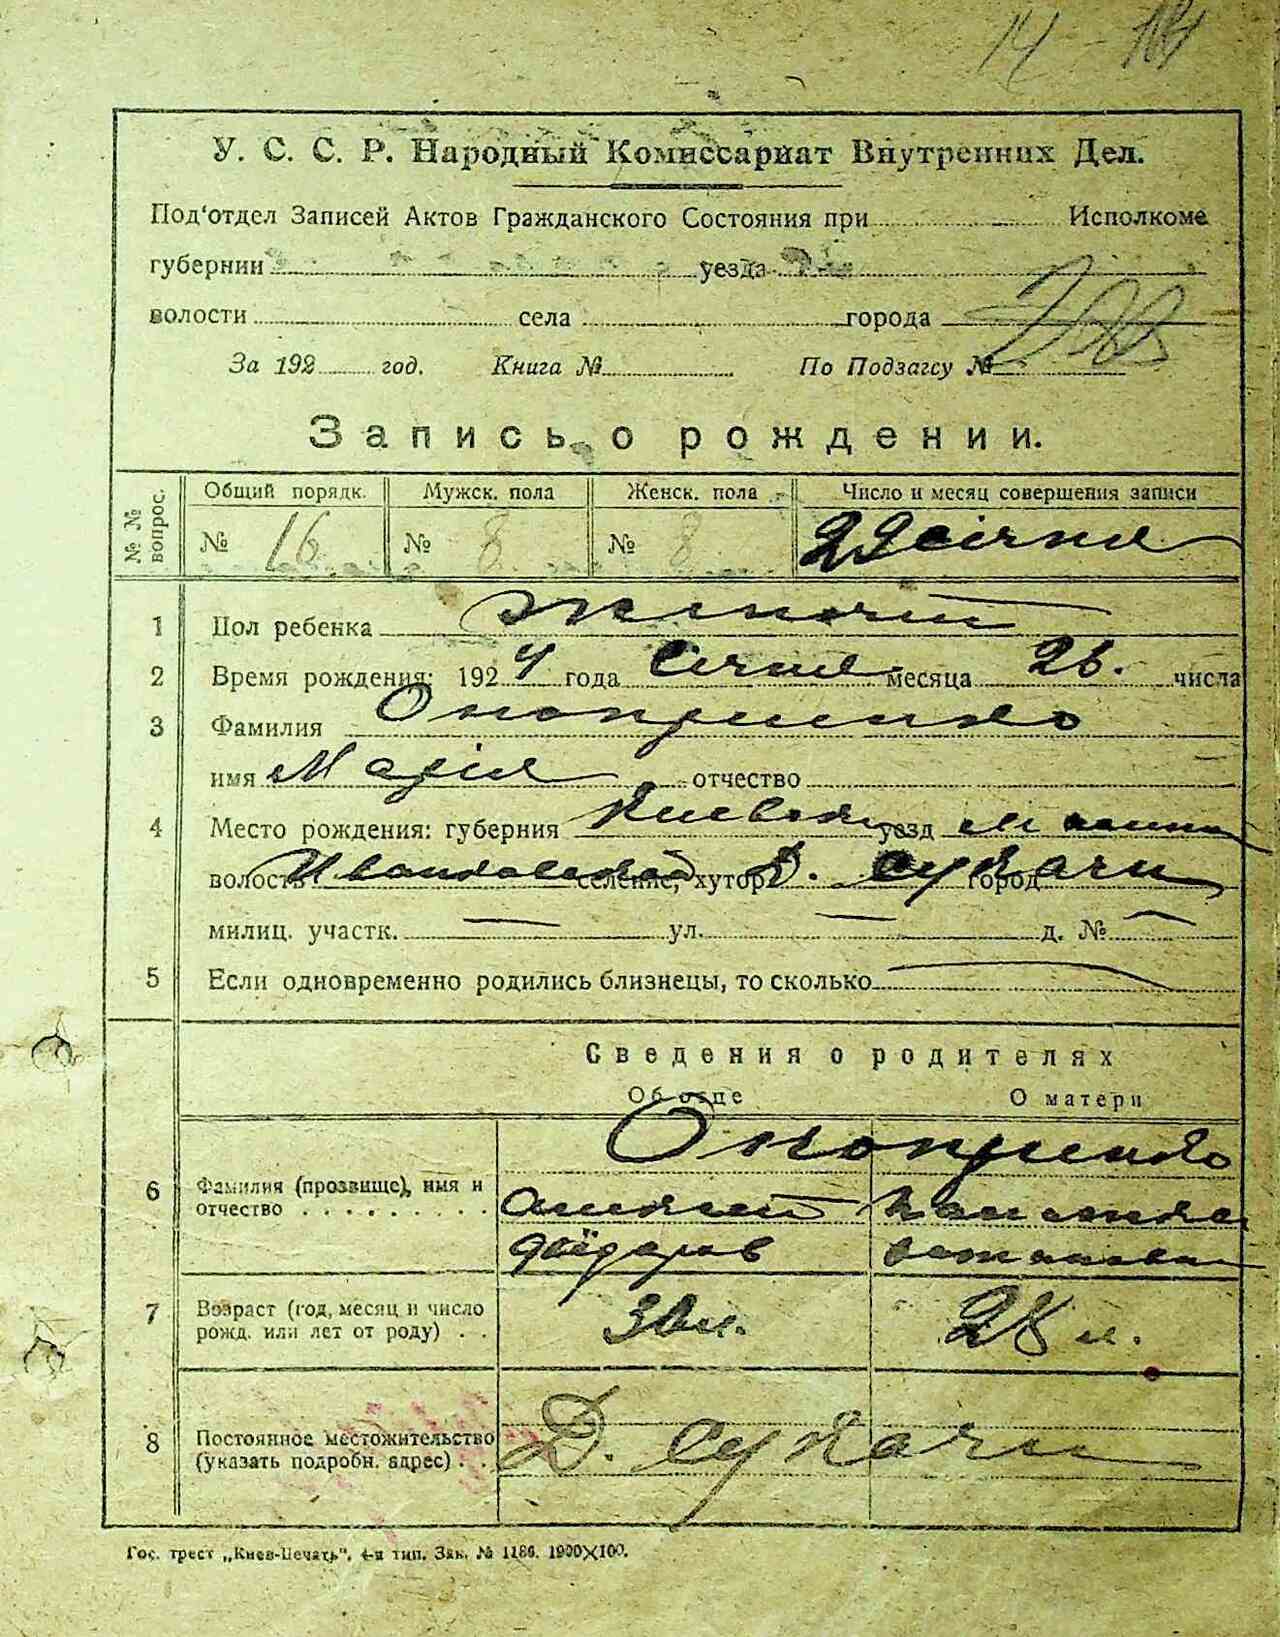 14 - 
У. С. С. Р. Народный Комиссариат Внутренних Дел.
Под'отдел Записей Актов Гражданского Состояния при Исполкоме
губернии уезда
волости села города
За 192 год. Книга № По Подзагсу №
Запись о рождении.
№ № вопрос. Общий порядк. Мужск. пола Женск. пола Число и месяц совершения записи
№ 16 № 8 № 8 22 січня
1 Пол ребенка
2 Время рождения: 1924 года Січня месяца 26. числа
3 Фамилия Оноприенко
имя Марія отчество
4 Место рождения: губерния Киевская уезд
волость Иванковской селение, хутор Д. Сукачи город
милиц. участк. — ул. — д. № —
5 Если одновременно родились близнецы, то сколько —
Сведения о родителях
Об отце О матери
Оноприенко
6 Фамилия (прозвище), имя и
отчество . . . . . . . . .
Фёдоров
7 Возраст (год, месяц и число
рожд. или лет от роду) . . 30 л. 28 л.
8 Постоянное местожительство
(указать подробн. адрес) . . Д. Сукачи
Гос. трест „Киев-Печать". 4-я тип. Зак. № 1186. 1900×100.